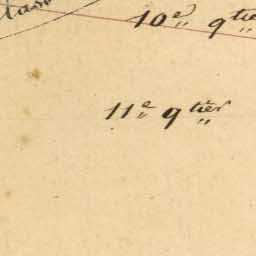 10e qtie
11e qtier